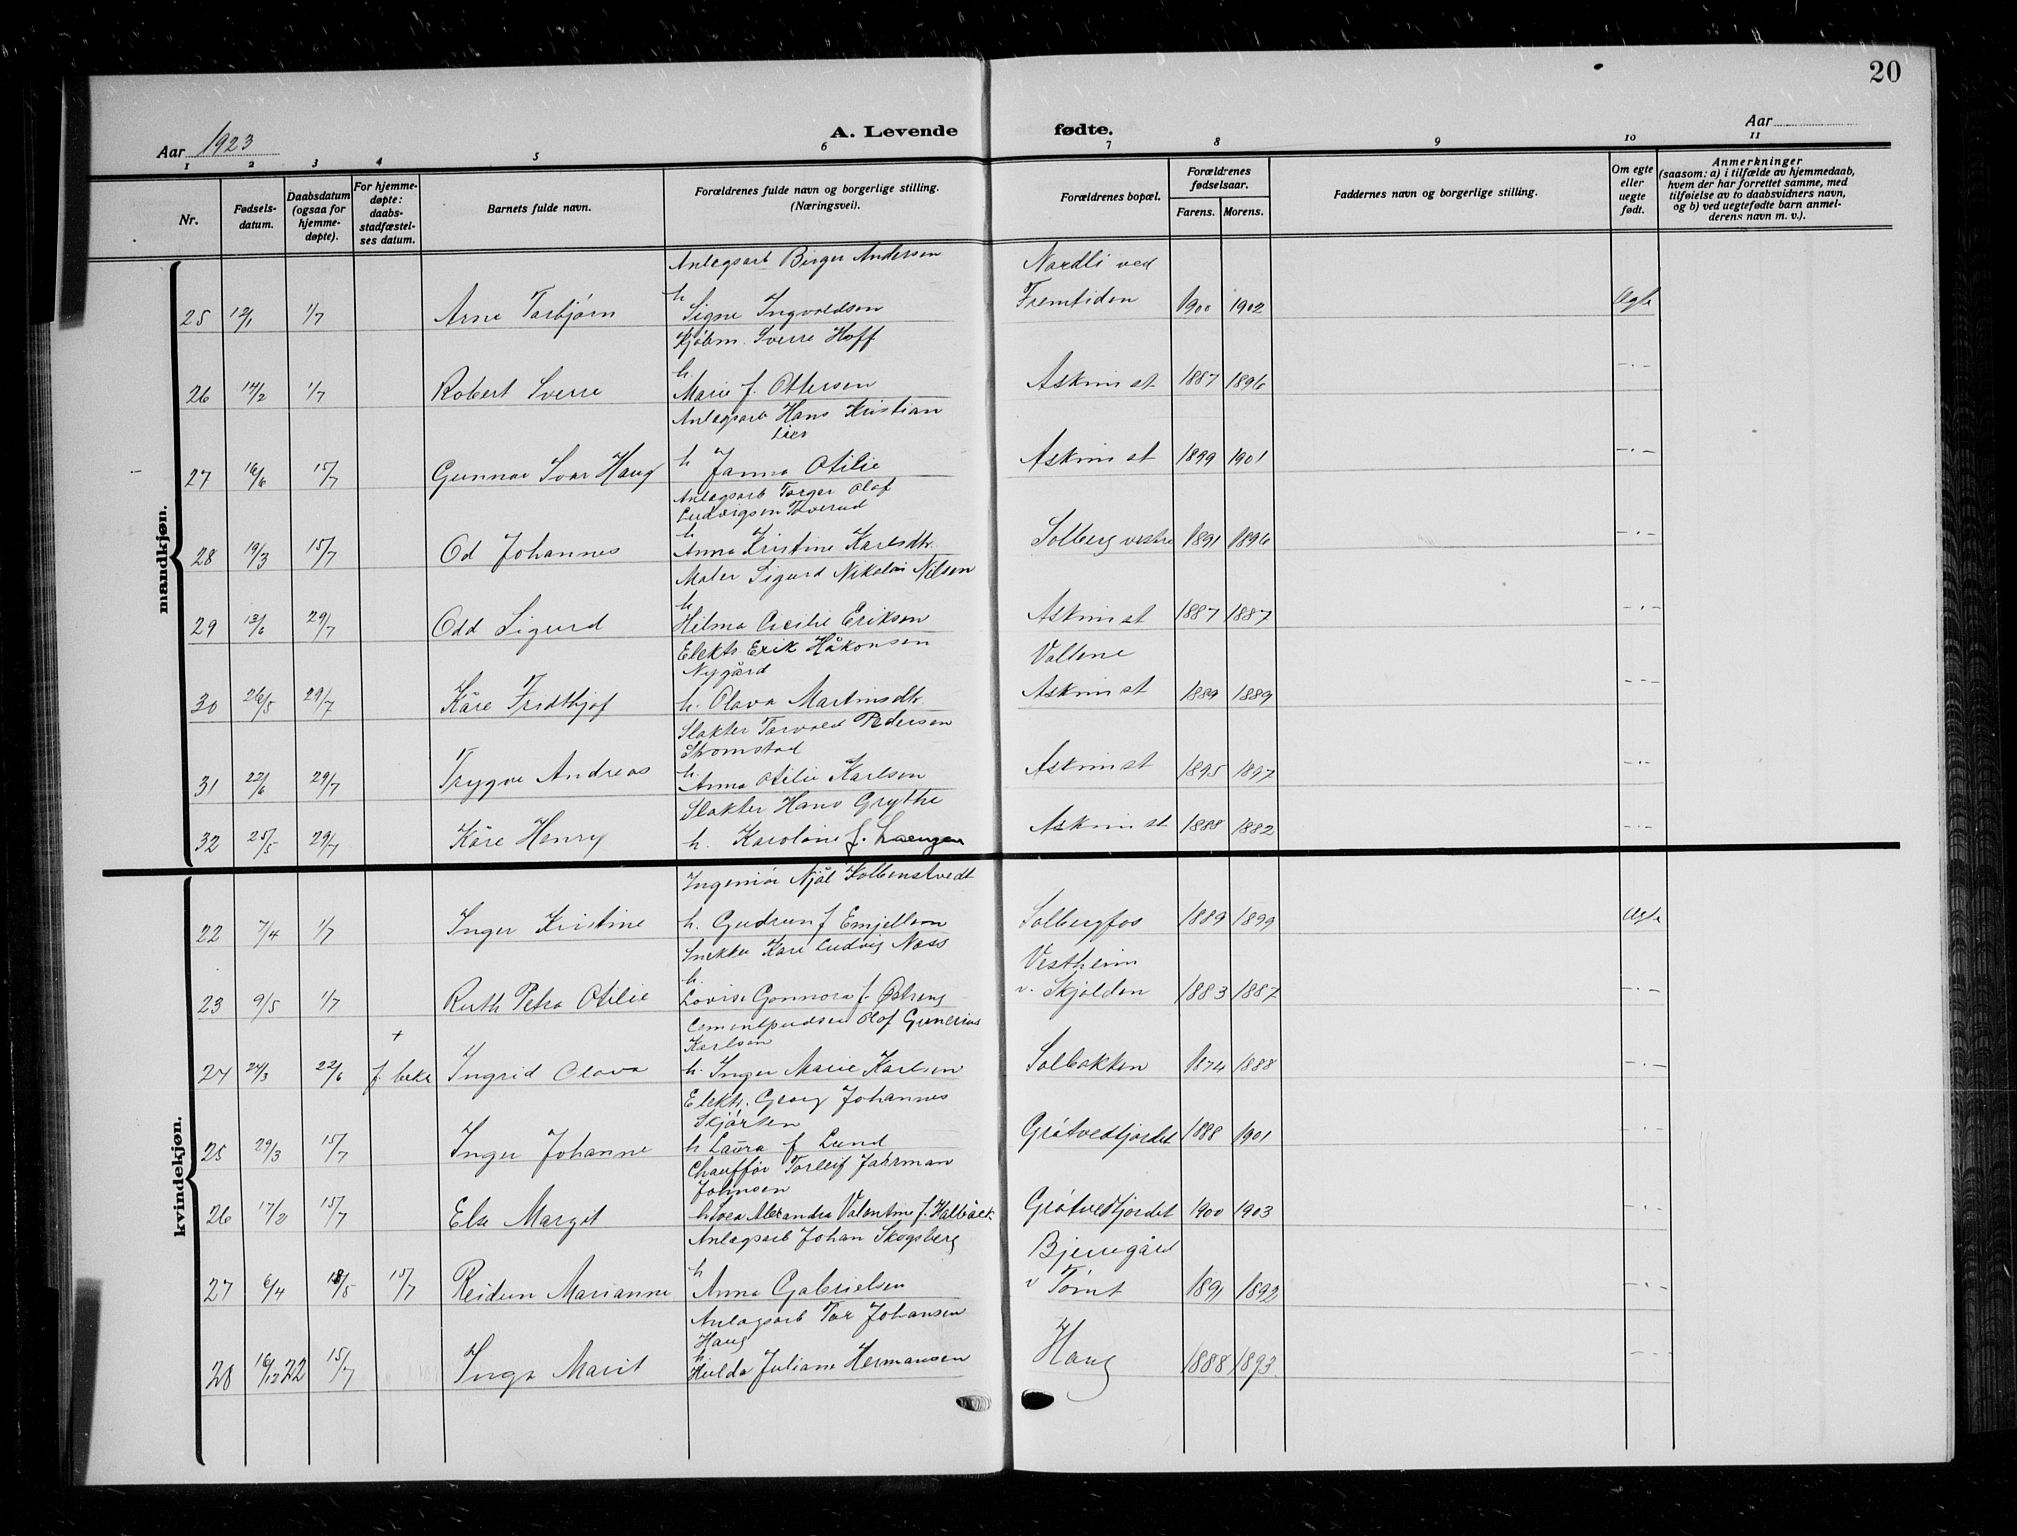 20
Aar 1923
A. Levende fødte.
Aar
1 2 3 4 5 6 7 8 9 10 11
Nr.
Fødsels-
datum.
Daabsdatum
(ogsaa for
hjemme-
døpte).
For hjemme-
døpte:
daabs-
stadfæstel-
ses datum.
Barnets fulde navn.
Forældrenes fulde navn og borgerlige stilling.
(Næringsvei).
Forældrenes bopæl.
Forældrenes
fødselsaar.
Farens. Morens.
Faddernes navn og borgerlige stilling.
Om egte
eller
uegte
født.
Anmerkninger
(saasom: a) i tilfælde av hjemmedaab,
hvem der har forrettet samme, med
tilføielse av to daabsvidners navn,
og b) ved uegtefødte barn anmel-
derens navn m. v.).
mandkjøn.
Anlægsarb Birger Andersen Nordli ved
h
25 12/1 1/7 Arne Torbjørn Signe Ingvaldsen Fremtiden 1900 1902 Ægte
Kjøbm. Sverre Hoff
h.
26 14/2 1/7 Robert Sverre Marie f. Ottersen Askim st 1887 1896 -·-
Anlægsarb Hans Kristian
Lier
27 16/6 15/7 Gunnar Ivar Haug h Janna Otilie Askim st 1899 1901 -·-
Anlægsarb Torger Olaf
Ludvigsen Toverud
h
28 19/3 15/7 Od Johannes Anna Kristine Karlsdtr. Solberg vestre 1891 1896 -·-
Maler Sigurd Nikolai Nilsen
h
29 13/6 29/7 Odd Sigurd Hilma Cecilie Eriksen Askim st 1887 1887 -·-
Elektr Erik Håkonsen Voltene
Nygård
30 26/5 29/7 Kåre Fridthjof h. Olava Martinsdtr. Askim st 1889 1889 ---
Slakter Torvald Pedersen
Stromstad
h.
31 22/6 29/7 Trygve Andreas Anna Otilie Karlsen Askim st 1895 1897 -·-
Slakter Hans Grythe
32 25/5 29/7 Kåre Henry h. Karoline f. Laengen Askim st 1888 1882 -·-
kvindekjøn.
Ingeniør Njål Kolbenstvedt
22 7/4 1/7 Inger Kristine h. Gudrun f Emjellem Solbergfos 1889 1899 Ægte
Snekker Kare Ludvig Næss Vestheim
h.
23 9/5 1/7 Ruth Petra Otilie Lovise Gunnora f. Østreng v. Skjolden 1883 1887 -·-
Cementpudser Olof Gunerius
Karlsen
+
24 24/3 22/6 f. bekr Ingrid Olava h. Inger Marie Karlsen Solbakken 1874 1888 -·-
Elektr. Georg Johannes
Skjørten
25 29/3 15/7 Inger Johanne h Laura f Lund Grøtvedtjordet 1888 1901 -·-
Chauffør Torleif Jahrman
Johnsen
26 17/2 15/7 Else Margit h. Svea Alexandra Valentine f. Hallbäck Grøtvedtjordet 1900 1903 -·-
Anlægsarb Johan Skogsberg Bjerregård
h
27 6/4 18/5 15/7 Reidun Marianne Anna Gabrielsen v Tømt 1891 1892 -·-
Anlægsarb Tor Johansen
Haug
h
28 16/12 22 15/7 Inga Marit Hulda Juliane Hermansen Haug 1888 1893. ---